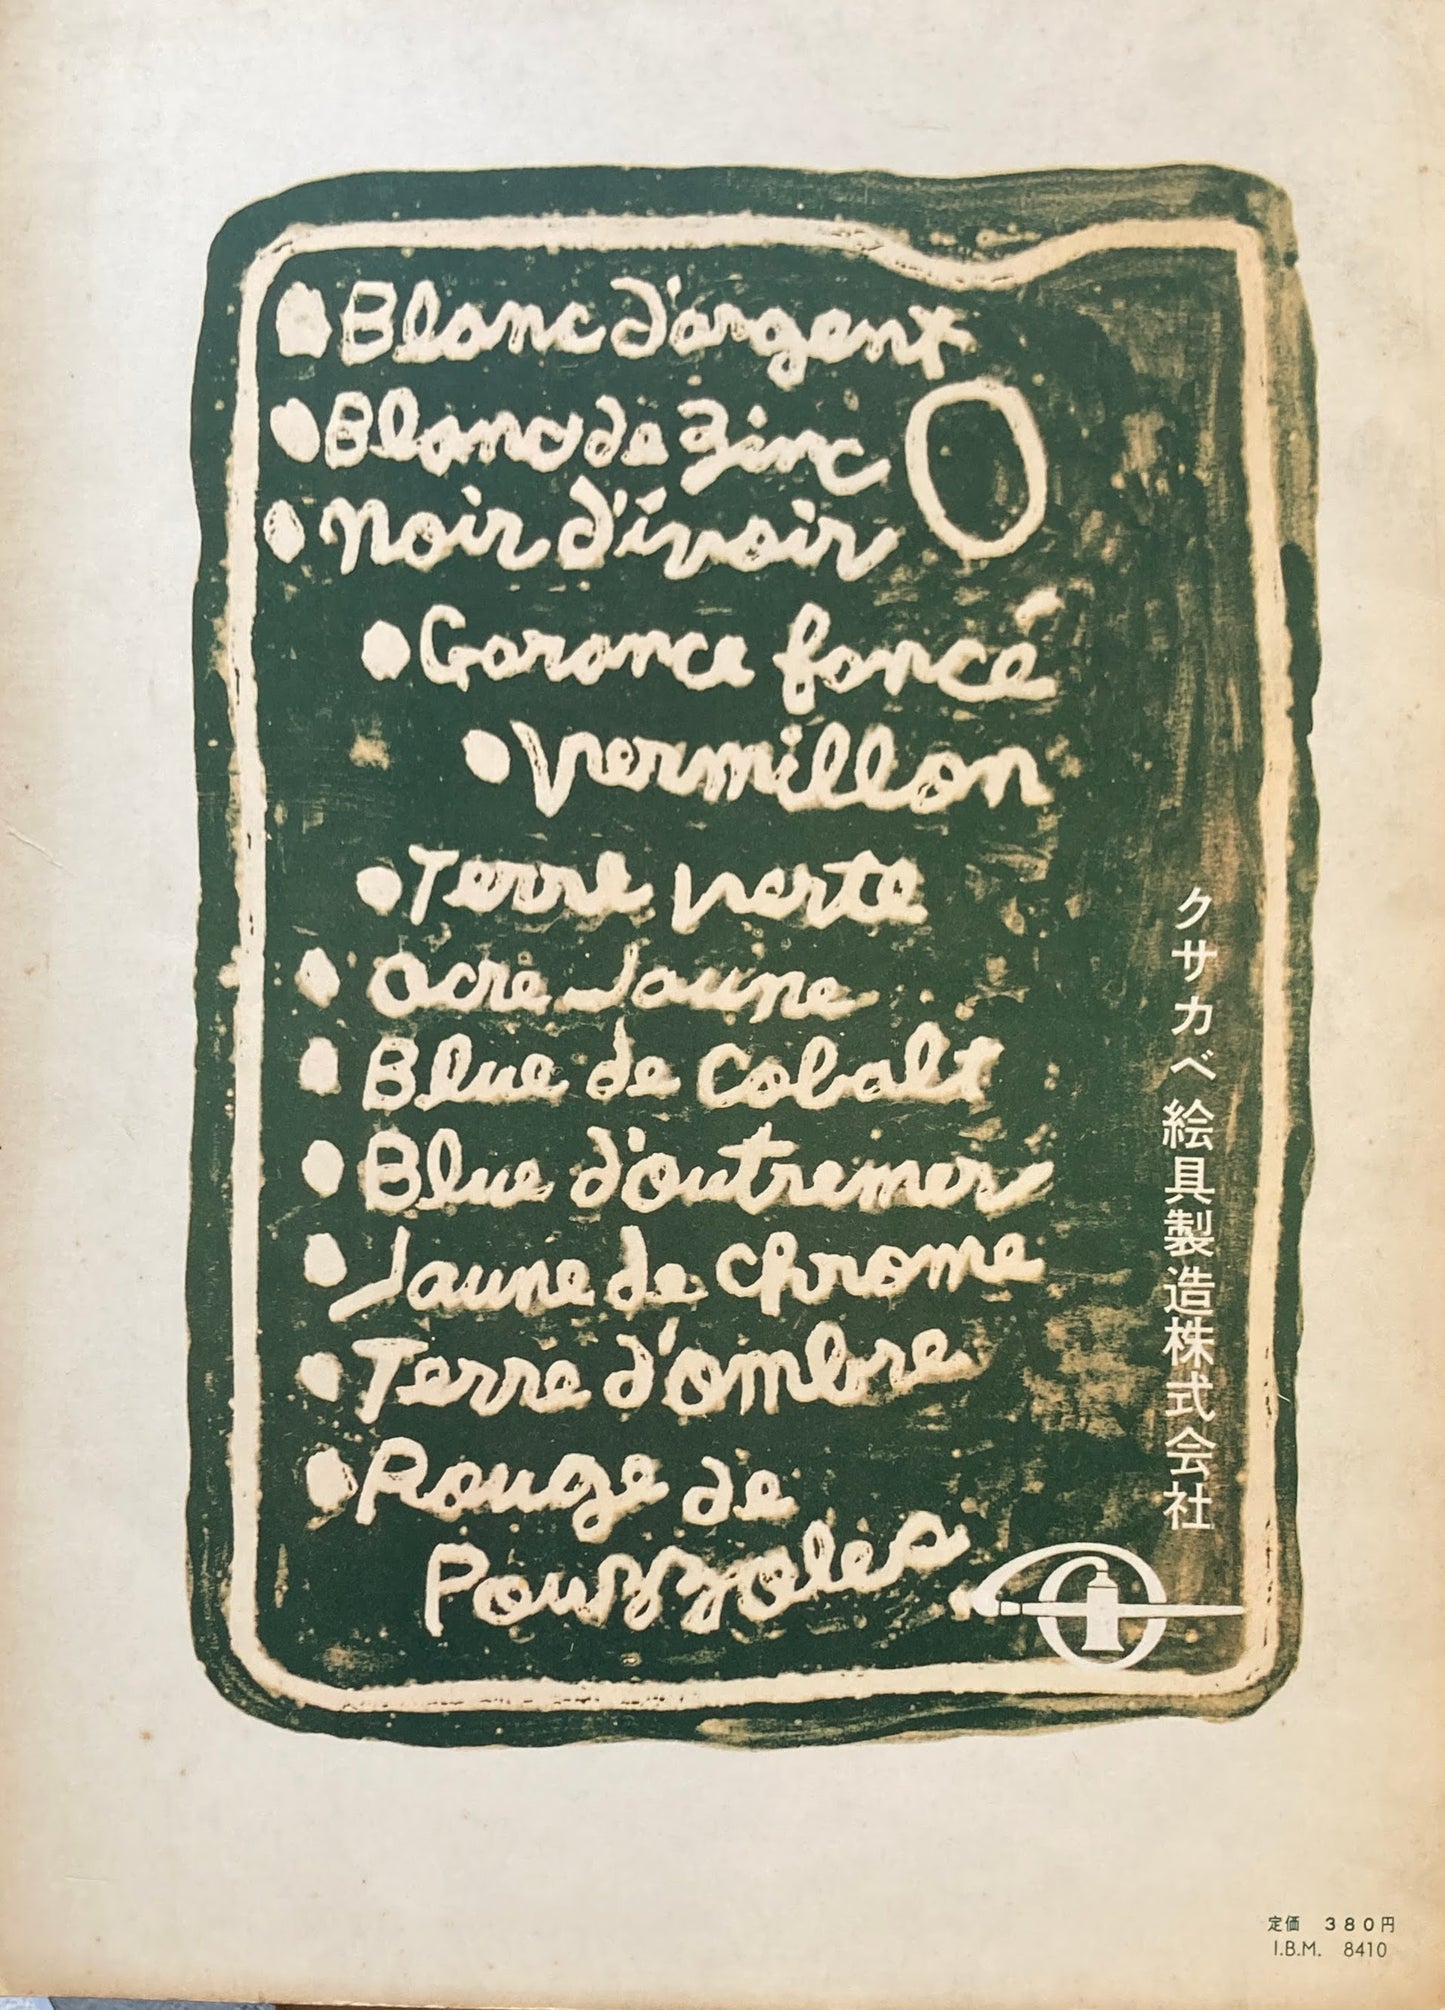 Blanc d'argent
Blanc de Zinc
Noir d'ivoir
Garance foncé
Vermillon
Terre verte
Ocre Jaune
Blue de Cobalt
Blue d'outremer
Jaune de chrome
Terre d'ombre
Rouge de
Pouzzoles
クサカベ絵具製造株式会社
定価 380円
I.B.M. 8410